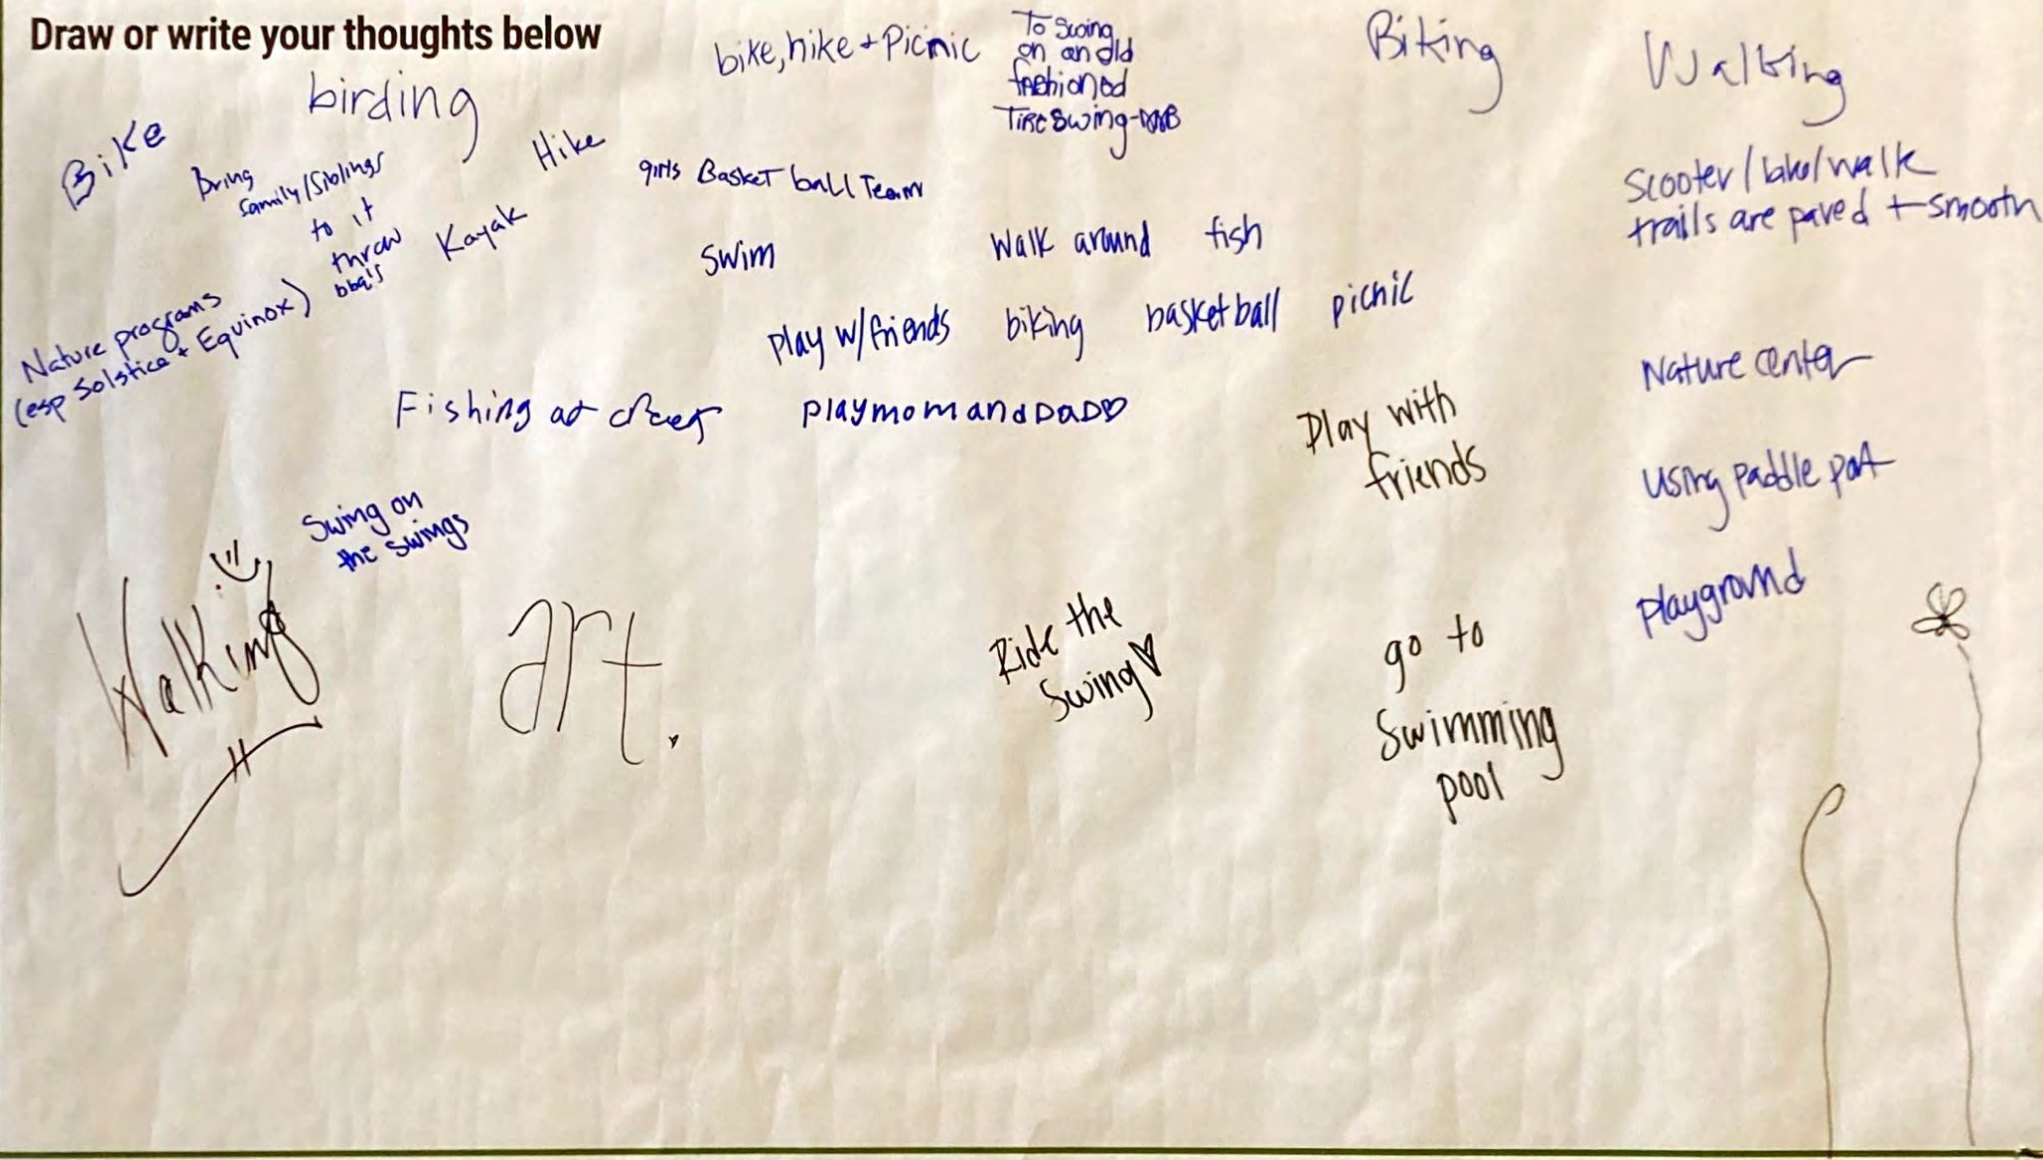 Draw or write your thoughts below
birding
bike, hike + Picnic
To Swing
on an old
fashioned
Tire Swing
Biking
Walking
Bike
Bring
family/Siblings
to it
throw
bbq's
Hike
Kayak
girls Basket ball Team
Scooter / /walk
trails are paved + smooth
Swim
Walk around
fish
Nature programs
(esp Solstice + Equinox)
play w/friends
biking
basketball
picnic
Nature center
Fishing at
playmomanddaD♡
Play with
friends
Using paddle
Swing on
the swings
playground
Walking
art.
Ride the
Swing♡
go to
Swimming
pool